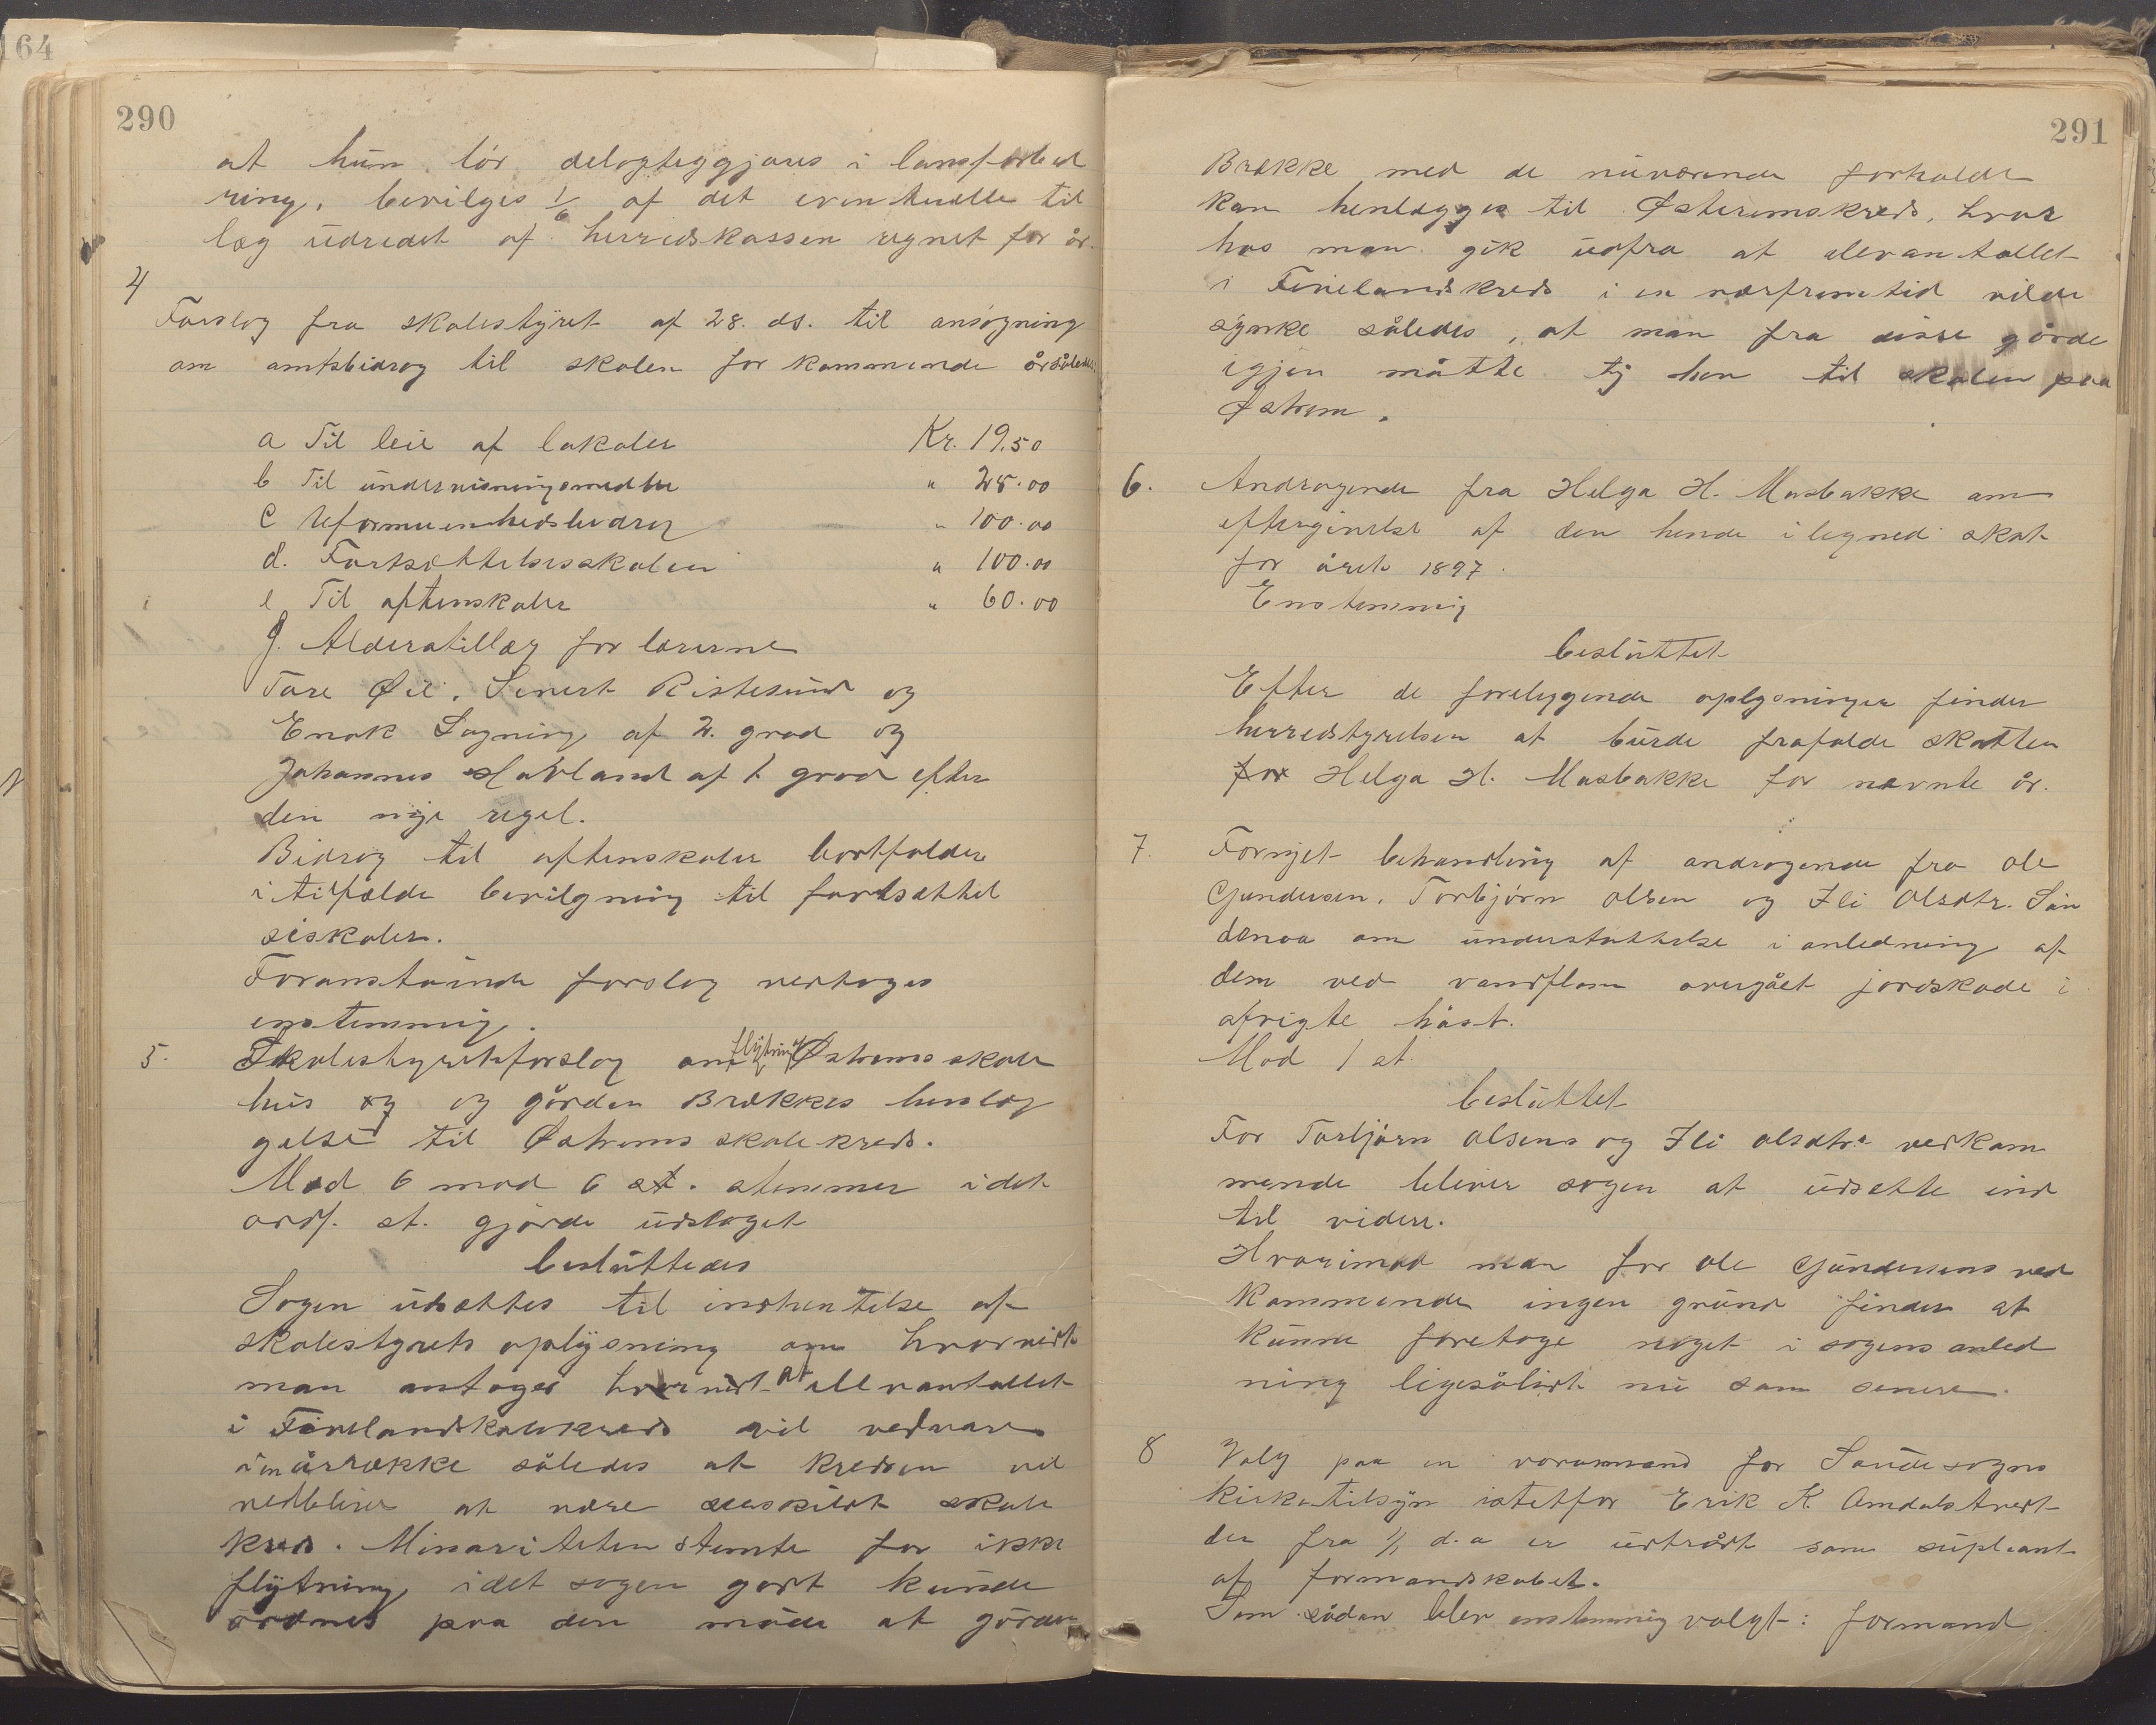 164
290
at hun bör delagtiggjøres i lønsforbed
ring, bevilges 1/6 af det eventuelle til
læg udredet af herredskassen regnet for år.
4
Forslag fra skolestyret af 28. ds. til ansøgning
om amtsbidrag til skolen for kommende år således
a Til leie af lokaler Kr. 19.50
b Til undervisningsmidler " 25.00
c Uformuenhedsbidrag " 100.00
d. Fortsættelsesskolen " 100.00
e Til aftenskoler " 60.00
g. Alderstillæg for lærerne
Tore Øie. Sivert Ristesund og
Enok Løgning af 2. grad og
Johannes Høvland af 1 grad efter
den nye regel.
Bidrag til aftenskoler bortfalder
i tilfælde bevilgning til fortsættel
sesskoler.
Foranstående forslag vedtoges
enstemmig.
5. Skolestyretsforslag om flytning Østrems skole
hus og og gården Brækkes henlæg
gelse til Østrems skolekreds.
Mod 6 mod 6 st. stemmer idet
ordf. st. gjorde udslaget
besluttedes
Sagen udsættes til indhentelse af
skolestyrets oplysning om hvorvidt
man antager hvorvidt at ellevantallet
i Finelandskolekreds vil vedvare
i en årrække således at kredsen vil
vedbliver at være særskildt skole
kreds. Minoriteten stemte for ikke
flytning, idet sagen godt kunde
ordnes paa den måde at gården
291
Brække med de nuværende forholde
kan henlægges til Østremskreds, hvor
hos man gik udfra at elevantallet
i Finelandskreds i en nærfremtid vilde
synke således, at man fra disse gårde
igjen måtte ty hen til skolen paa
Østrem.
6. Andragende fra Helga H. Mosbakke om
eftergivelse af den hende ilegned skat
for året 1897.
Enstemmig
besluttet
Efter de foreliggende oplysninger finder
herredstyrelsen at burde frafalde skatten
for Helga H. Mosbakke for nævnte år.
7. Fornyet behandling af andragende fra Ole
Gundersen, Torbjørn Olsen og Ili Olsdtr. Sån
denaa om understøttelse i anledning af
dem ved vandflom overgået jordskade i
afvigte høst.
Mod 1 st.
besluttet
For Torbjørn Olsens og Ili Olsdtr.s vedkom
mende bliver sagen at udsætte ind
til videre.
Hvorimod man for Ole Gundersens ved
kommende ingen grund finder at
kunne foretage noget i sagens anled
ning ligesålidt nu som senere.
8 Valg paa en varamand for Sandesogns
kirketilsyn istetfor Erik K. Omdalstvedt
der fra 1/1 d.a er udtrådt som supleant
af formandskabet.
Som sådan blev enstemmig valgt: formand